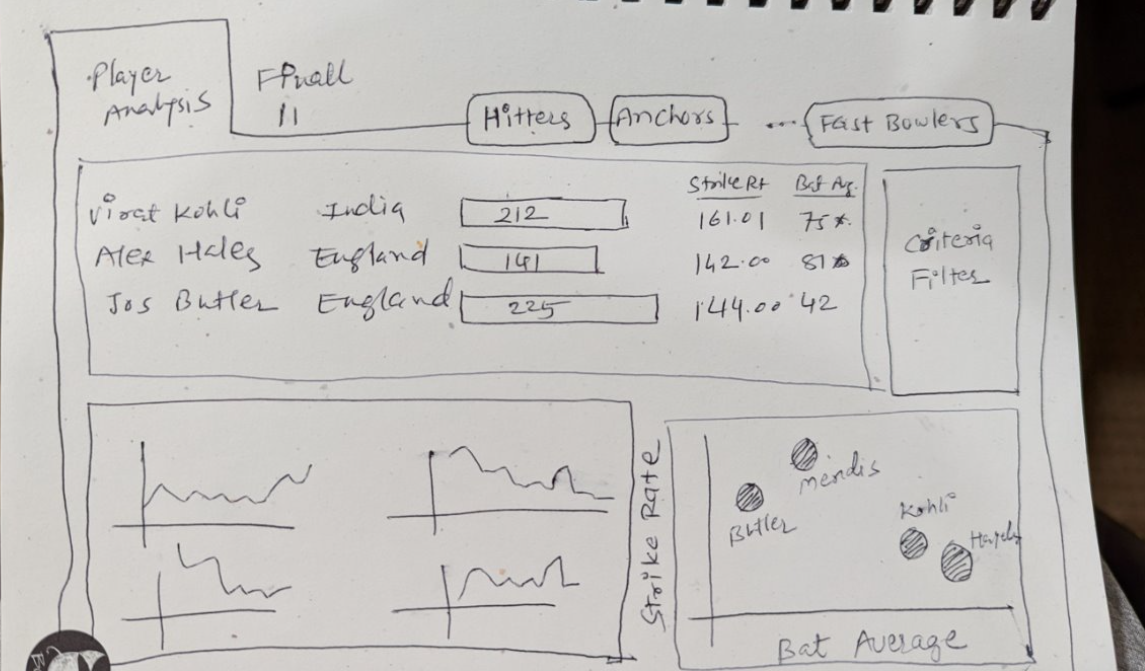 Player
Analysis
Final
11
Hitters
Anchors
...
Fast Bowlers
Strike Rt Bat Ag.
Virat Kohli India 212 161.01 75*
Alex Hales England 141 142.00 81*
Jos Butler England 225 144.00 42
Criteria
Filter
Strike Rate
Mendis
Butler
Kohli
Bat Average